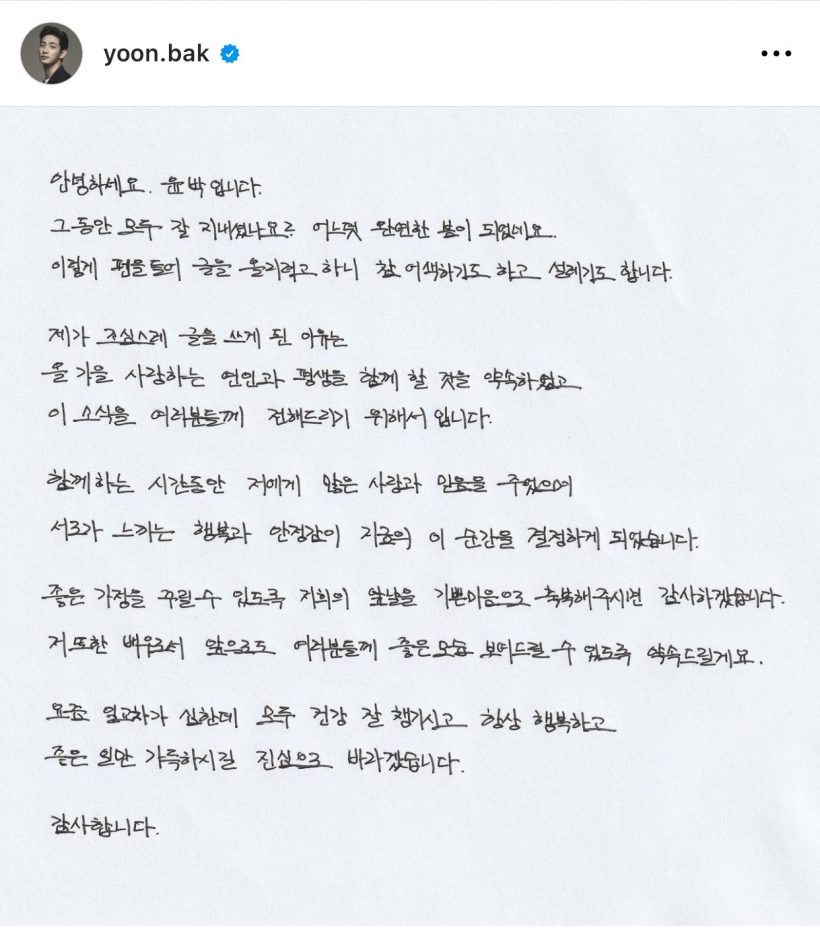 yoon.bak
안녕하세요. 윤박입니다.
그동안 모두 잘 지내셨나요? 어느덧 완연한 봄이 되었네요.
이렇게 펜을 들어 글을 올리려고 하니 참 어색하기도 하고 설레기도 합니다.
제가 조심스레 글을 쓰게 된 이유는
올 가을 사랑하는 연인과 평생을 함께 할 것을 약속하였고
이 소식을 여러분들께 전해드리기 위해서 입니다.
함께하는 시간동안 저에게 많은 사랑과 믿음을 주었으며
서로가 느끼는 행복과 안정감이 지금의 이 순간을 결정하게 되었습니다.
좋은 가정을 꾸릴 수 있도록 저희의 앞날을 기쁜마음으로 축복해주시면 감사하겠습니다.
저 또한 배우로서 앞으로도 여러분들께 좋은모습 보여드릴 수 있도록 약속드릴게요.
요즘 일교차가 심한데 모두 건강 잘 챙기시고 항상 행복하고
좋은 일만 가득하시길 진심으로 바라겠습니다.
감사합니다.